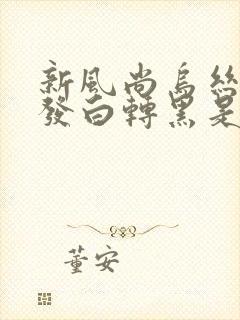 新風尚烏絲
發白轉黑是
董安